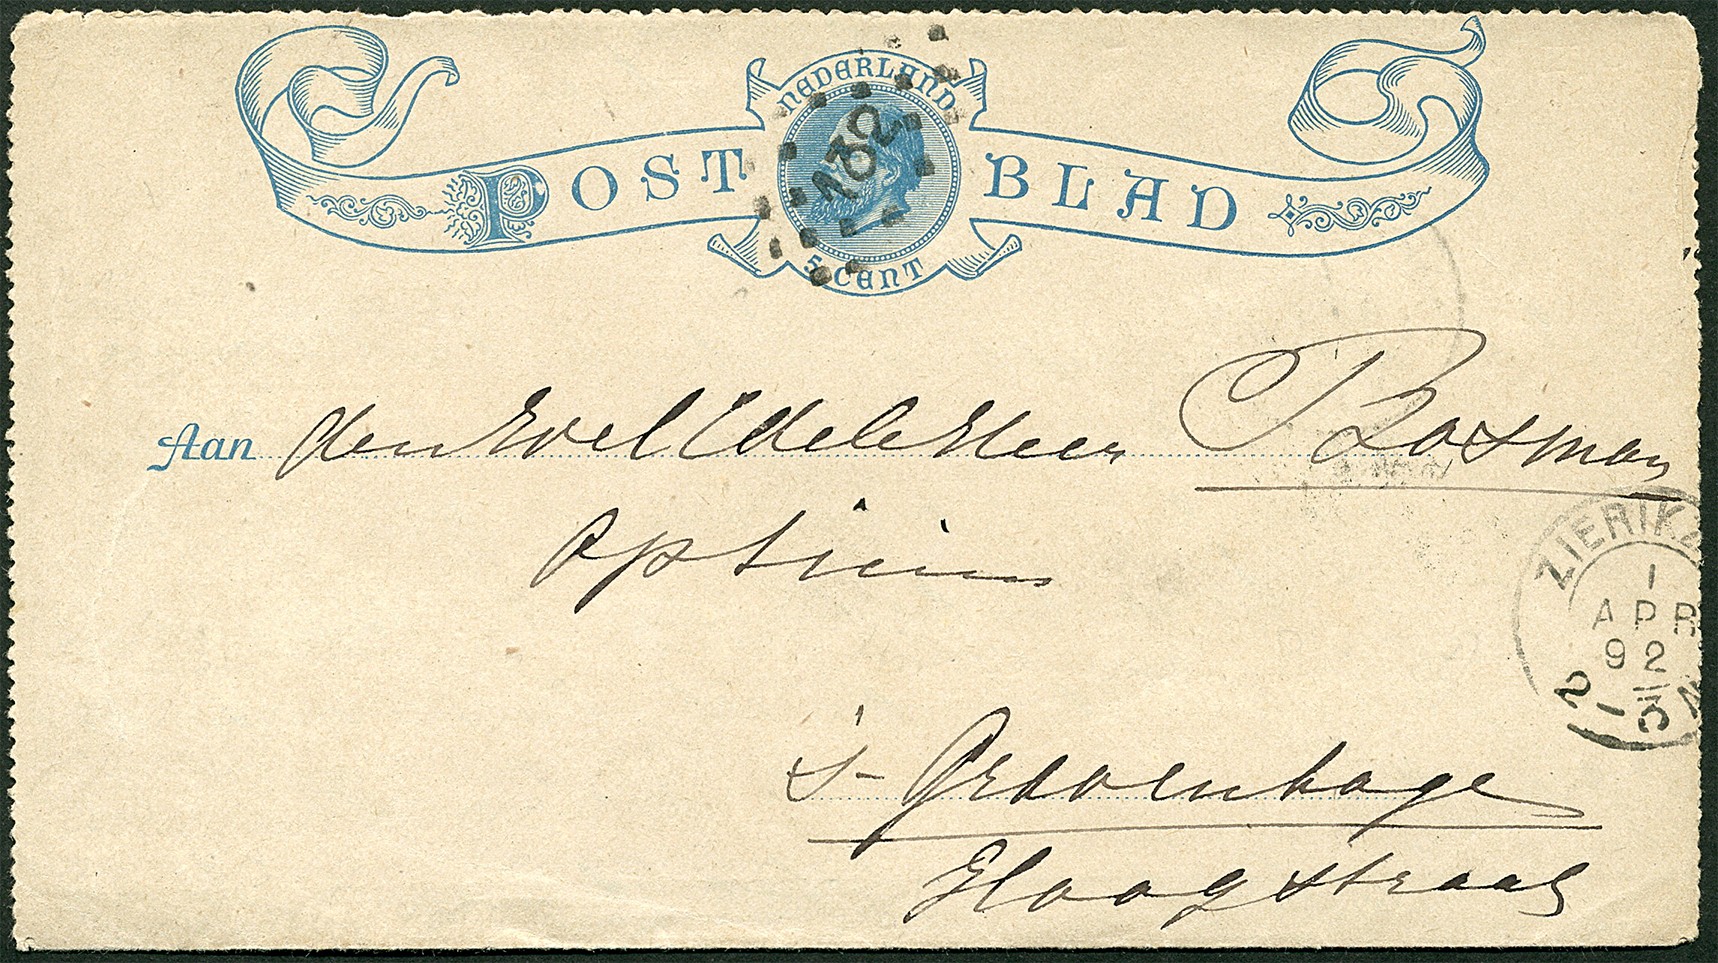 NEDERLAND
POSTBLAD
132
5 CENT
Aan den Wel Edele Heer P Bosman
Opticien
's-Gravenhage
Hoogstraat
ZIERIKZ
1
APR
92
2-3N